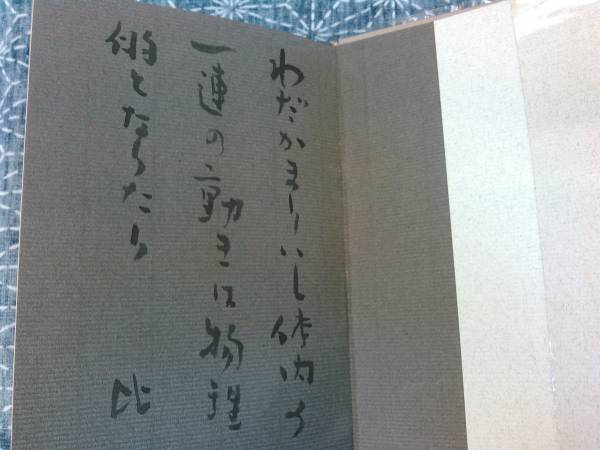 わだかまりいし体内の
一連の動きは物理
的となりたり
比